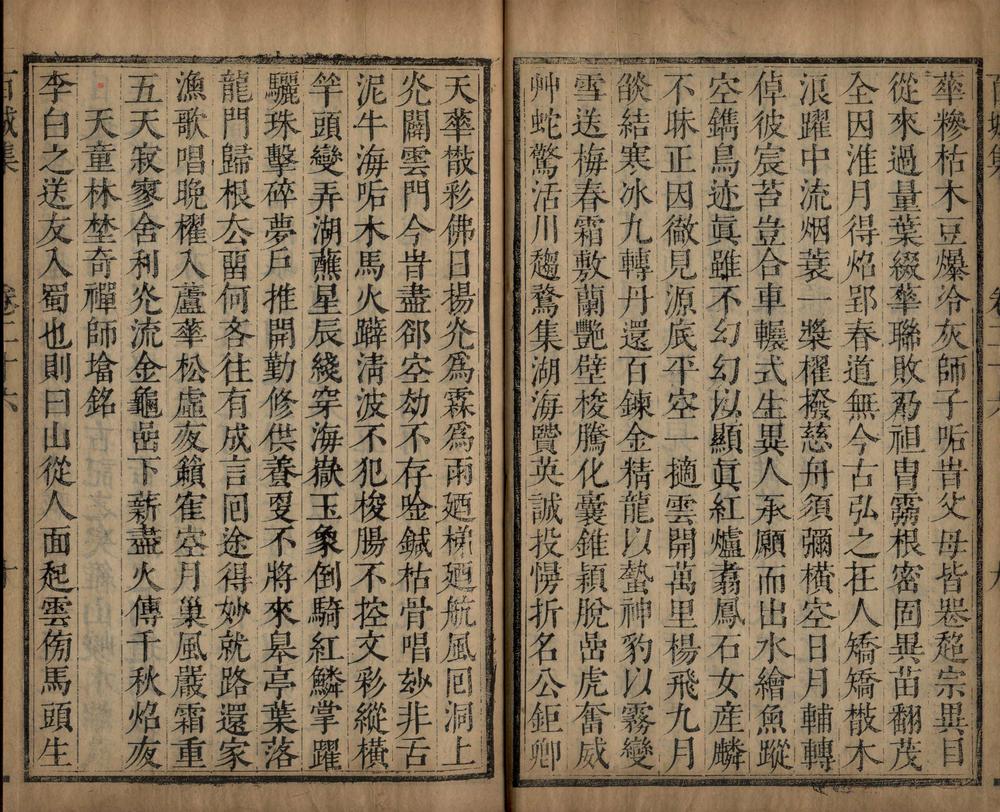 華糝枯木豆爆冷灰師子咗𣅜父母皆喪超宗異目
從來過量葉綴華聯敗芿袒胄靄根密固異苗翻茂
全因淮月得焰郢春道無今古弘之在人矯矯㪚木
浪躍中流烟蓑一槳櫂撥慈舟須彌橫空日月輔轉
倬彼宸苔豈合車輾式生異人承願而出水繪魚蹤
空鐫鳥迹眞雖不幻幻㠯顯眞紅爐翥鳳石女産麟
不昧正因徹見源底平空一擿雲開萬里楊飛九月
燄結寒冰九轉丹還百鍊金精龍㠯蟄神豹㠯霧變
雪送梅春霜敷蘭艷壁梭騰化囊錐穎脫嵒虎奮威
艸蛇驚活川趨鶩集湖海賮英誠投愰折名公鉅卿
天華㪚彩佛日揚灮爲霖爲雨廼梯廼航風回洞上
灮闢雲門今昔盡郤空劫不存唫鍼枯骨唱玅非舌
泥牛海咗木馬火躃淸波不犯梭腸不控文彩縱橫
竿頭變弄湖蘸星辰綫穿海嶽玉象倒騎紅鱗掌躍
驪珠擊碎夢戶推開勤修供養㪅不將來皋亭葉落
龍門歸根厺畱何客往有成言回途得妙就路還家
漁歌唱晚櫂入蘆華松虛夜籟隺空月巢風嚴霜重
五天寂寥舍利灮流金龜嵒下薪盡火傳千秋焰夜
天童林埜奇禪師墖銘
李白之送友入蜀也則曰山從人面起雲㑂馬頭生